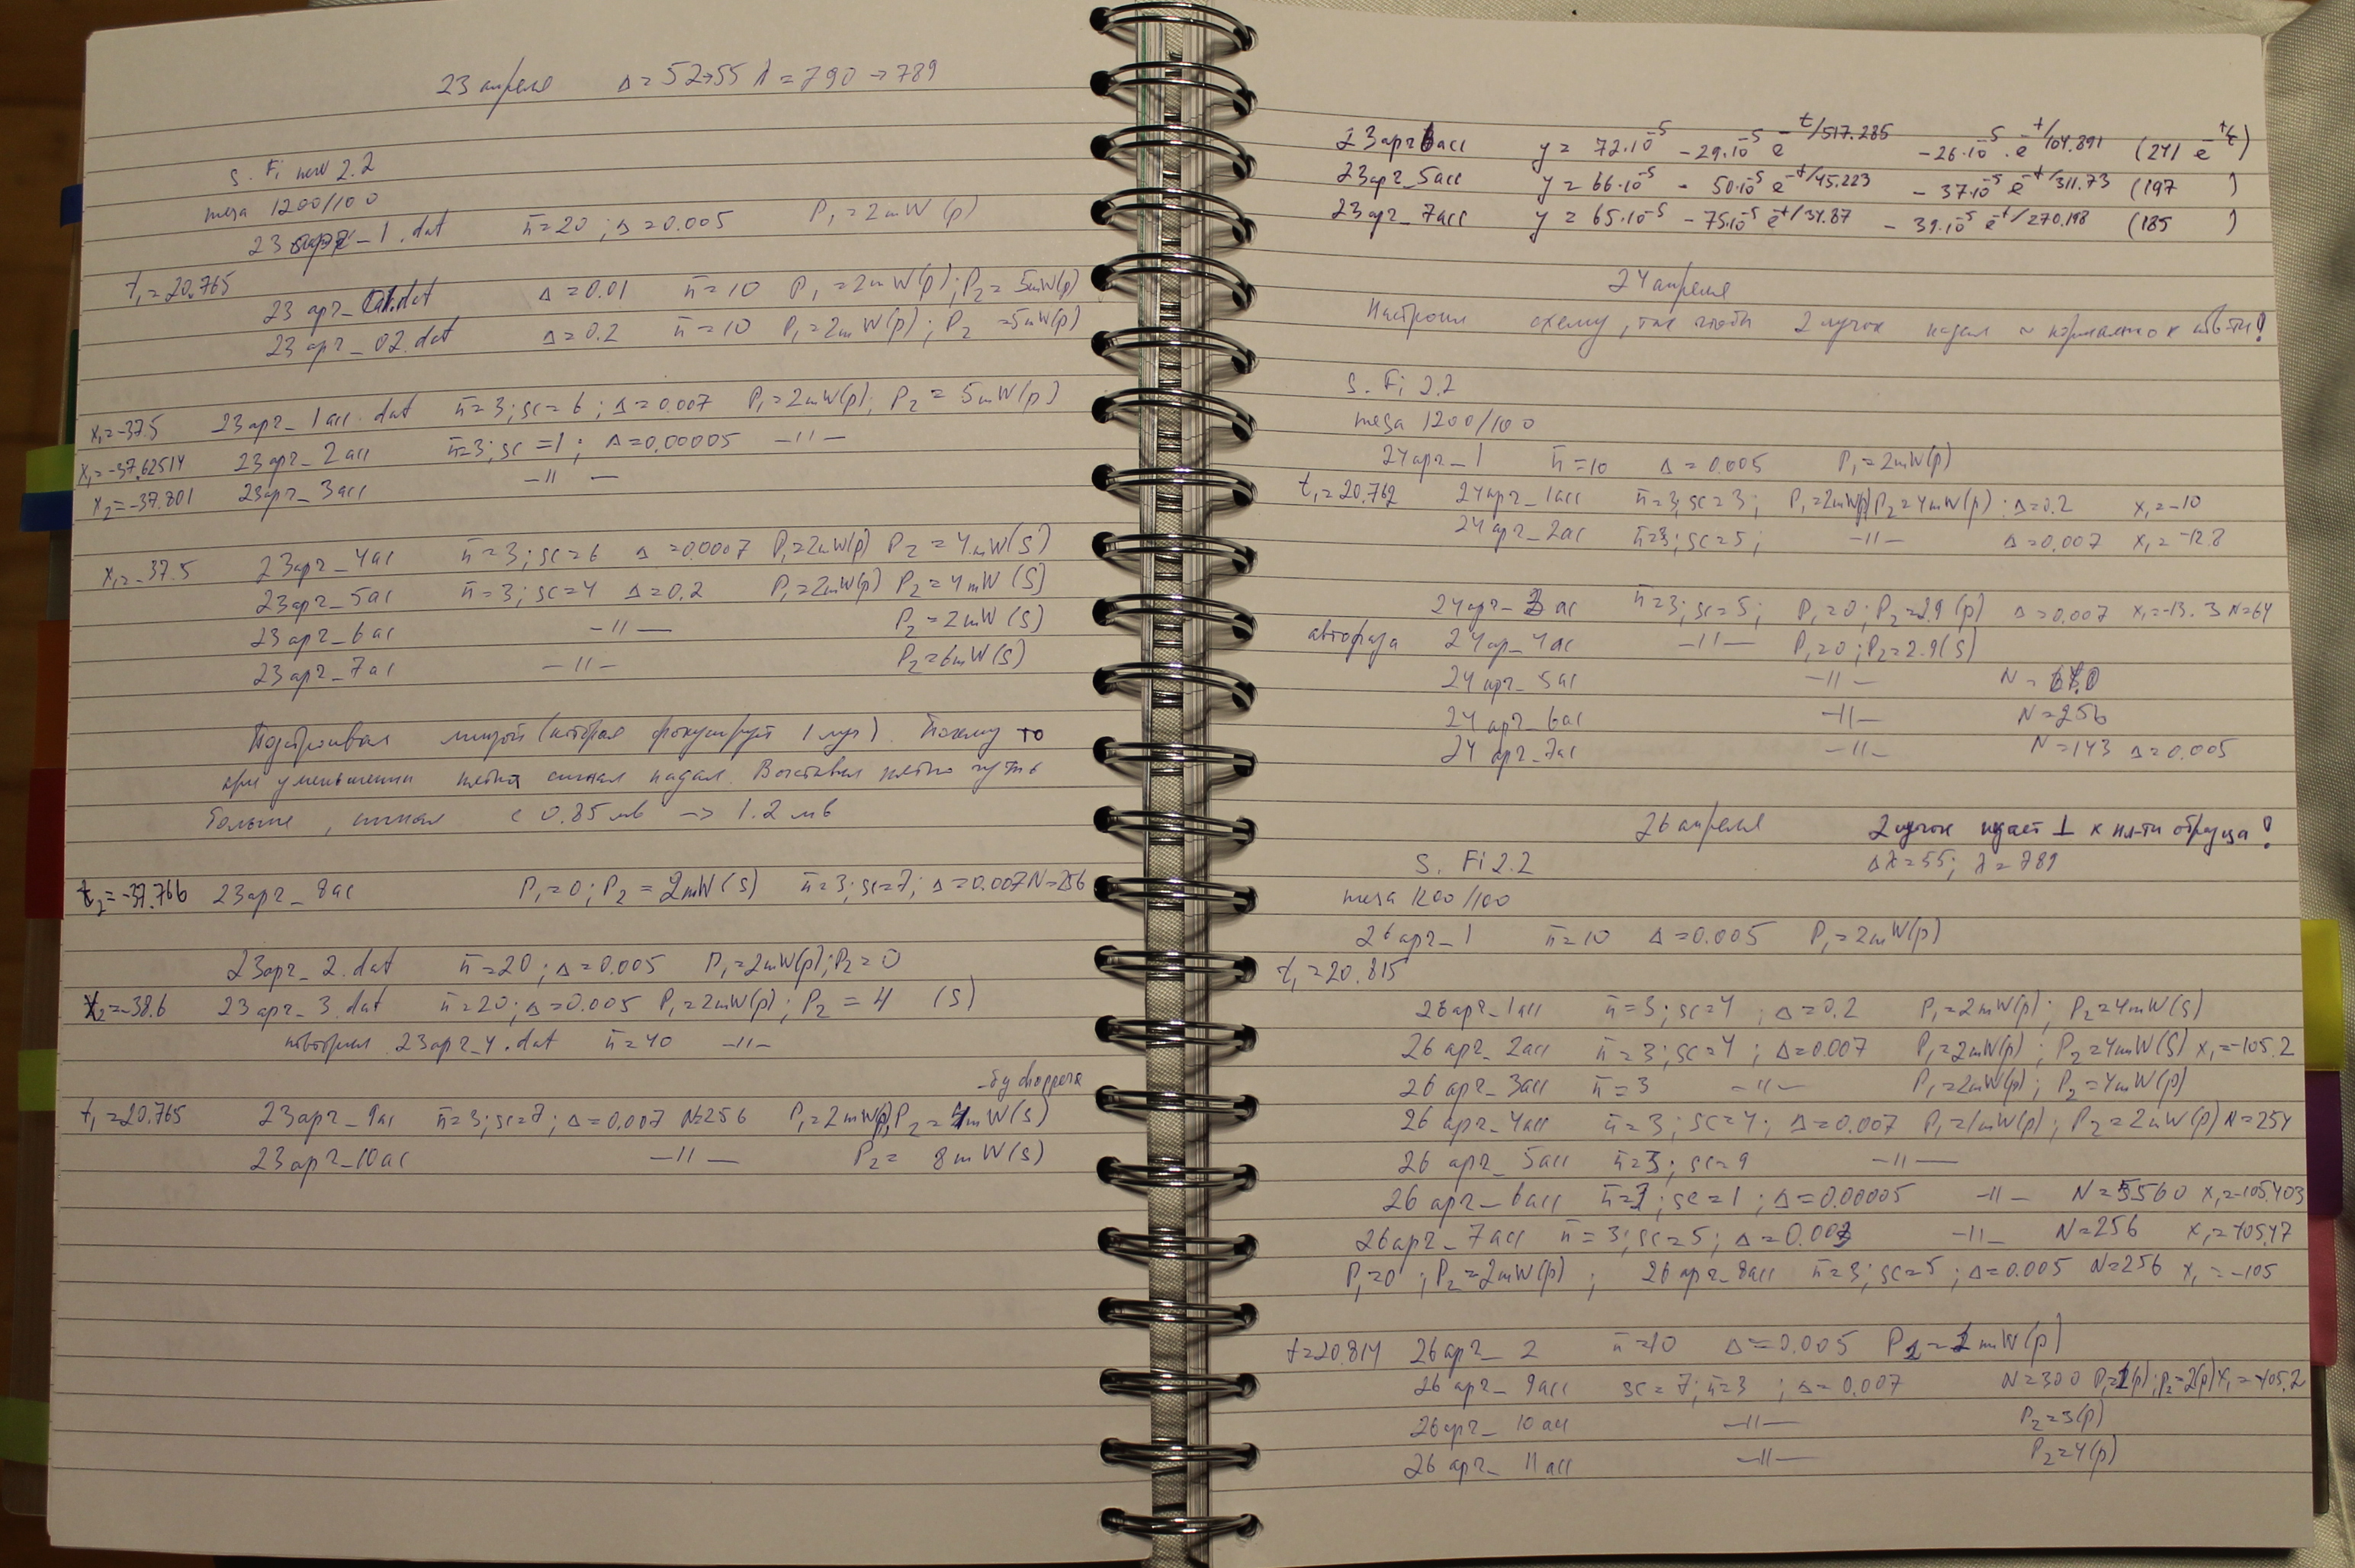 23 апреля Δ = 52→55 λ = 790 → 789
S. Fi new 2.2
meza 1200/100
23 apr_1.dat n̄=20 ; Δ=0.005 P₁=2mW(p)
t₁=20.765
23 apr_01.dat Δ=0.01 n̄=10 P₁=2mW(p); P₂=5mW(p)
23 apr_02.dat Δ=0.2 n̄=10 P₁=2mW(p); P₂=5mW(p)
x₁=-37.5 23apr_1acc.dat n̄=3; sc=6; Δ=0.007 P₁=2mW(p); P₂=5mW(p)
x₁=-37.62514 23apr_2acc n̄=3; sc=1; Δ=0.00005 –〃–
x₂=-37.801 23apr_3acc –〃–
x₁=-37.5 23apr_4ac n̄=3; sc=6 Δ=0.0007 P₁=2mW(p) P₂=4mW(s)
23apr_5ac n̄=3; sc=4 Δ=0.2 P₁=2mW(p) P₂=4mW(s)
23apr_6ac –〃– P₂=2mW(s)
23apr_7ac –〃– P₂=6mW(s)
Подстраивал линзой (которая фокусирует 1 луч). Почему то
при уменьшении пятна сигнал падал. Выставил пятно чуть
больше, сигнал с 0.85 мв → 1.2 мв
x₂=-37.766 23apr_8ac P₁=0; P₂=2mW(s) n̄=3; sc=7; Δ=0.007 N=256
23apr_2.dat n̄=20; Δ=0.005 P₁=2mW(p); P₂=0
x₂=-38.6 23apr_3.dat n̄=20; Δ=0.005 P₁=2mW(p); P₂=4 (s)
повторил 23apr_4.dat n̄=40 –〃–
t₁=20.765 23apr_9ac n̄=3; sc=7; Δ=0.007 N=256 P₁=2mW(p), P₂=4mW(s)
23apr_10ac –〃– P₂= 8mW(s)
23apr6acc y = 72·10⁻⁵ - 29·10⁻⁵ e^(-t/517.285) - 26·10⁻⁵·e^(-t/104.891) (241 e^(-t/τ))
23apr_5acc y = 66·10⁻⁵ - 50·10⁻⁵ e^(-t/45.223) - 37·10⁻⁵ e^(-t/311.73) (197 )
23apr_7acc y = 65·10⁻⁵ - 75·10⁻⁵ e^(-t/34.87) - 39·10⁻⁵ e^(-t/270.198) (185 )
24 апреля
Настроил схему, так чтобы 2 лучок падал ~ нормально к пов-ти!
S. Fi 2.2
meza 1200/100
24apr_1 n̄=10 Δ=0.005 P₁=2mW(p)
t₁=20.762 24apr_1acc n̄=3; sc=3; P₁=2mW(p) P₂=4mW(p); Δ=0.2 x₁=-10
24apr_2ac n̄=3; sc=5; –〃– Δ=0.007 x₁=-12.8
24apr_3ac n̄=3; sc=5; P₁=0; P₂=2.9(p) Δ=0.007 x₁=-13.3 N=64
автофаза 24ap_4ac –〃– P₁=0; P₂=2.9(s)
24apr_5ac –〃–
24apr_6ac –〃– N=256
24apr_7ac –〃– N=143 Δ=0.005
26 апреля 2 лучок падает ⊥ к пл-ти образца!
S. Fi 2.2 Δλ=55; λ=789
meza 1200/100
26apr_1 n̄=10 Δ=0.005 P₁=2mW(p)
t₁=20.815
26apr_1acc n̄=3; sc=4; Δ=0.2 P₁=2mW(p); P₂=4mW(s)
26apr_2acc n̄=3; sc=4; Δ=0.007 P₁=2mW(p); P₂=4mW(s) x₁=-105.2
26apr_3acc n̄=3 –〃– P₁=2mW(p); P₂=4mW(p)
26apr_4acc n̄=3; sc=4; Δ=0.007 P₁=1mW(p); P₂=2mW(p) N=254
26apr_5acc n̄=3; sc=9 –〃–
26apr_6acc n̄=1; sc=1; Δ=0.00005 –〃– N=5560 x₁=-105.403
26apr_7acc n̄=3; sc=5; Δ=0.003 –〃– N=256 x₁=-105.47
P₁=0; P₂=2mW(p); 26apr_8acc n̄=3; sc=5; Δ=0.005 N=256 x₁=-105
t=20.814 26apr_2 n̄=10 Δ=0.005 P₁=1mW(p)
26apr_9acc sc=7; n̄=3; Δ=0.007 N=300 P₁=1(p); P₂=2(p) x₁=-105.2
26apr_10acc –〃– P₂=3(p)
26apr_11acc –〃– P₂=4(p)